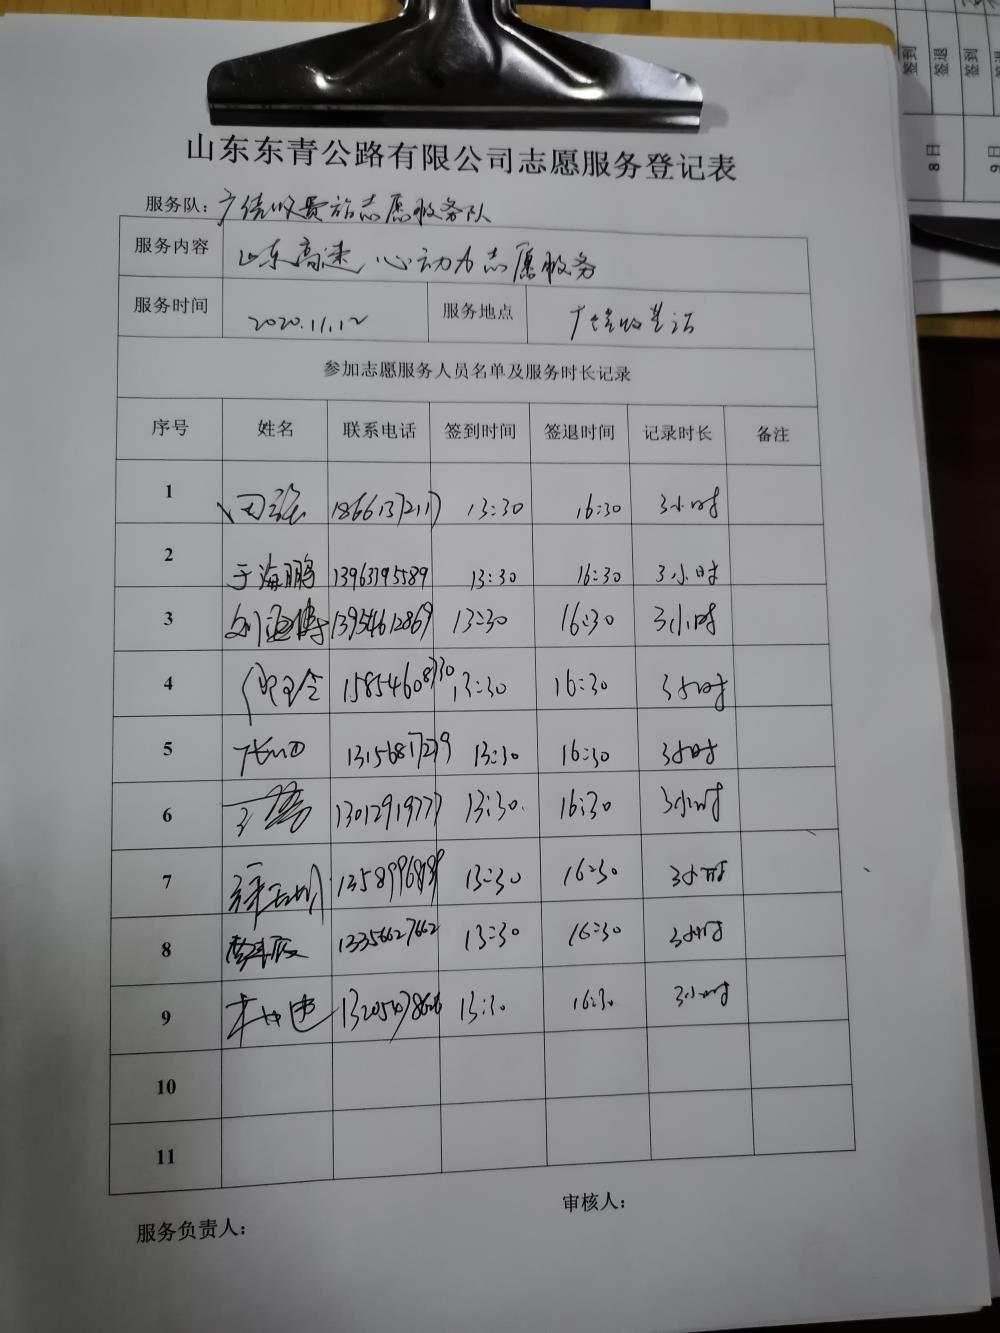 山东东青公路有限公司志愿服务登记表
服务队：广饶收费站志愿服务队
服务内容 山东高速 心动力志愿服务
服务时间 2020.11.12 服务地点 广饶收费站
参加志愿服务人员名单及服务时长记录
序号 姓名 联系电话 签到时间 签退时间 记录时长 备注
1 18661372117 13:30 16:30 3小时
2 于海鹏 13963795589 13:30 16:30 3小时
3 13954612869 13:30 16:30 3小时
4 15854608730 13:30 16:30 3小时
5 13156817279 13:30 16:30 3小时
6 13012919777 13:30 16:30 3小时
7 13:30 16:30 3小时
8 13356627662 13:30 16:30 3小时
9 13:30 16:30 3小时
10
11
服务负责人： 审核人：
签到
签退
签到
8日
9日